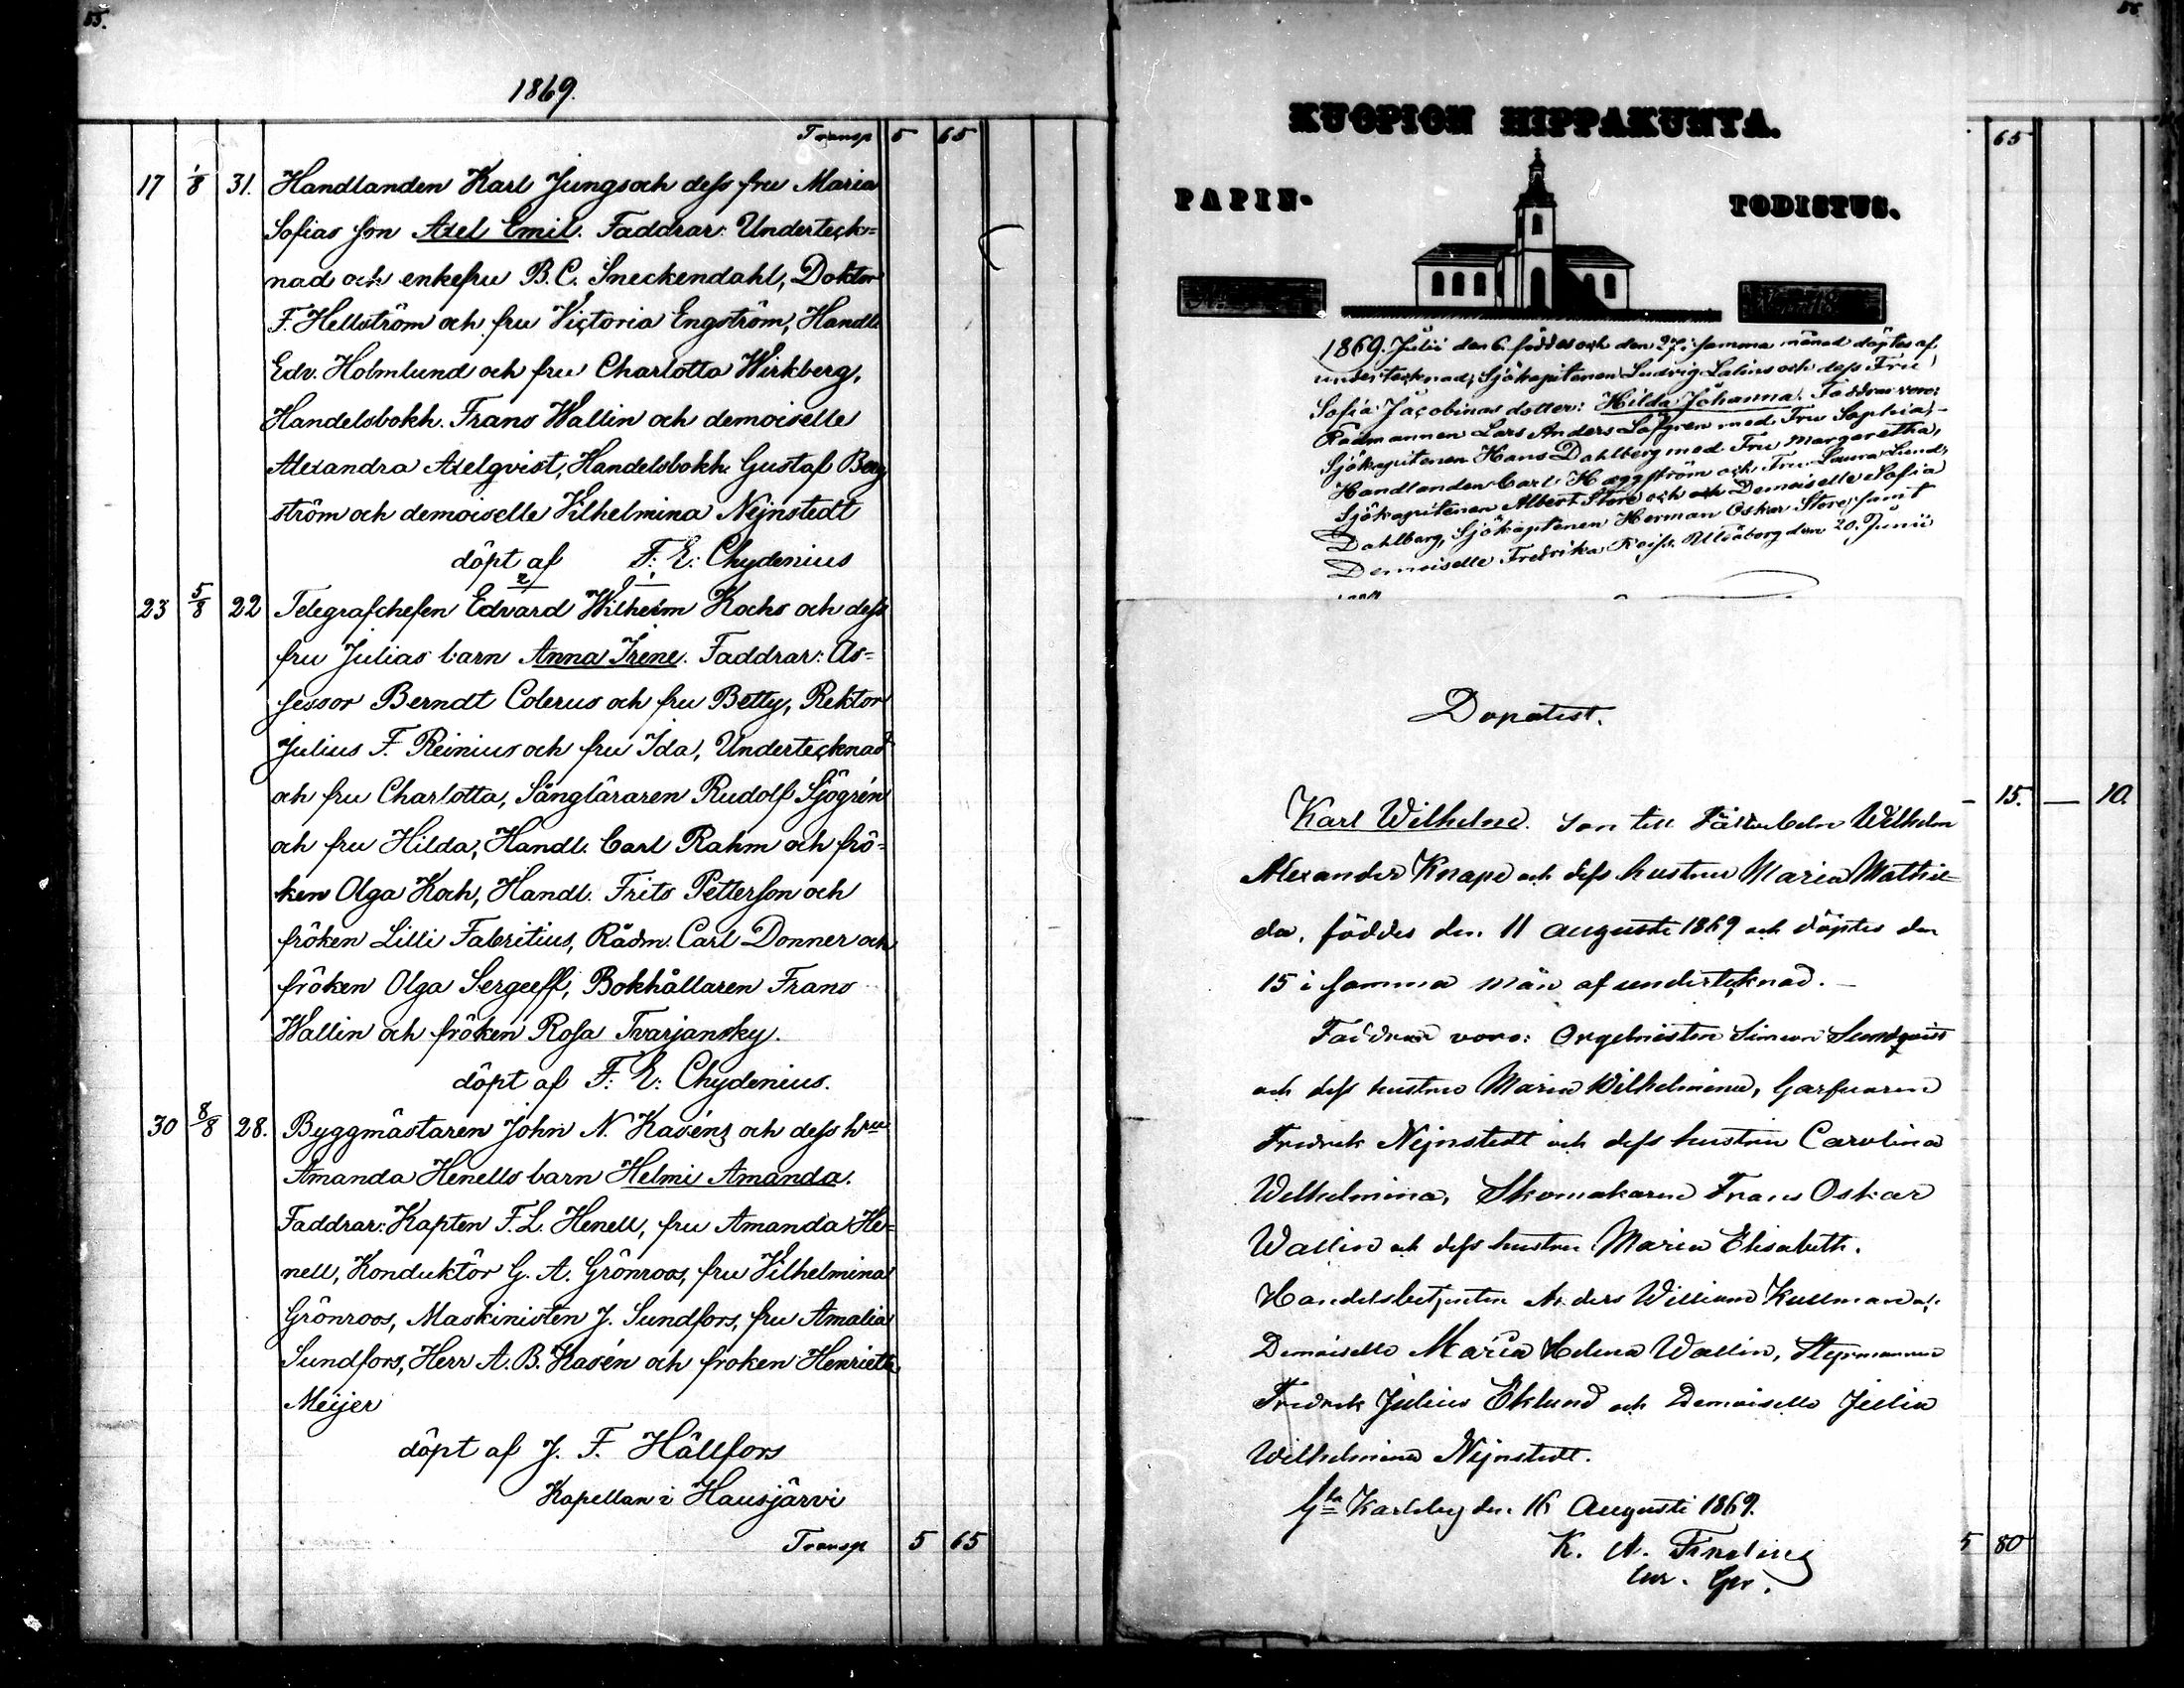 55.
1869.
Transp 5 65
17 1/8 31. Handlanden Karl Jungs och dess fru Maria
Sofias son Axel Emil. Faddrar: Underteck=
nad och enkefru B. C. Sneckendahl, Doktor
F. Hellström och fru Victoria Engström, Handl.
Edv. Holmlund och fru Charlotta Wirkberg,
Handelsbokh. Frans Wallin och demoiselle
Alexandra Axelqvist, Handelsbokh. Gustaf Berg
ström och demoiselle Vilhelmina Nejnstedt
döpt af F: E: Chydenius
23 5/8 22 Telegrafchefen Edvard Wilhelm Kochs och dess
2 1
fru Julias barn Anna Irene. Faddrar: As=
sessor Berndt Colerus och fru Betty, Rektor
Julius F. Reinius och fru Ida, Undertecknad
och fru Charlotta, Sångläraren Rudolf Sjögrén
och fru Hilda, Handl. Carl Rahm och frö=
ken Olga Koch, Handl. Frits Petterson och
fröken Lilli Fabritius, Rådm. Carl Donner och
fröken Olga Sergeeff, Bokhållaren Frans
Wallin och fröken Rosa Tvarjansky.
döpt af F: E: Chydenius.
30 8/8 28. Byggmästaren John N. Kaséns och dess hru
Amanda Henells barn Helmi Amanda.
Faddrar: Kapten F. L. Henell, fru Amanda He=
nell, Konduktör G. A. Grönroos, fru Vilhelmina
Grönroos, Maskinisten J. Sundfors, fru Amalia
Sundfors, Herr A. B. Kasén och froken Henriette
Meijer
döpt af J. F. Hällfors
Kapellan i Hausjärvi
Transp 5 65
56
65
KUOPION HIPPAKUNTA.
PAPIN- TODISTUS.
1869. Julii den 6. föddes och den 27. i samma månad döptes af
undertecknad, Sjökapitenen Ludvig Lalins och dess Fru
Sofia Jacobinas dotter: Hilda Johanna. Faddrar voro:
Rådmannen Lars Anders Löfgren med Fru Sophia,
Sjökapitenen Hans Dahlberg med Fru Margaretha,
Handlanden Carl Hæggström och Fru Laura Lund,
Sjökapitenen Albert Store och Demoiselle Sofia
Dahlberg, Sjökaptenen Herman Oskar Store samt
Demoiselle Fredrika Uleåborg den 20. Junii
Dopatest.
15. — 10.
Karl Wilhelm. Son till Wilhelm
Alexander Knape och dess hustru Maria Mathil=
da, föddes den 11 augusti 1869 och döptes den
15 i samma mån af undertecknad.
Faddrar voro: Orgelnisten Simeon Sundqvist
och dess hustru Maria Wilhelmina, Garfvaren
Fredrik Nejnstedt och dess hustru Carolina
Wilhelmina, Skomakaren Frans Oskar
Wallin och dess hustru Maria Elisabeth.
Handelsbetjenten Anders William Kullman och
Demoiselle Maria Helena Wallin, Styrmannen
Fredrik Julius Eklund och Demoiselle Julia
Wilhelmina Nejnstedt.
Gla Karleby den 16 Augusti 1869.
K. A.
5 80